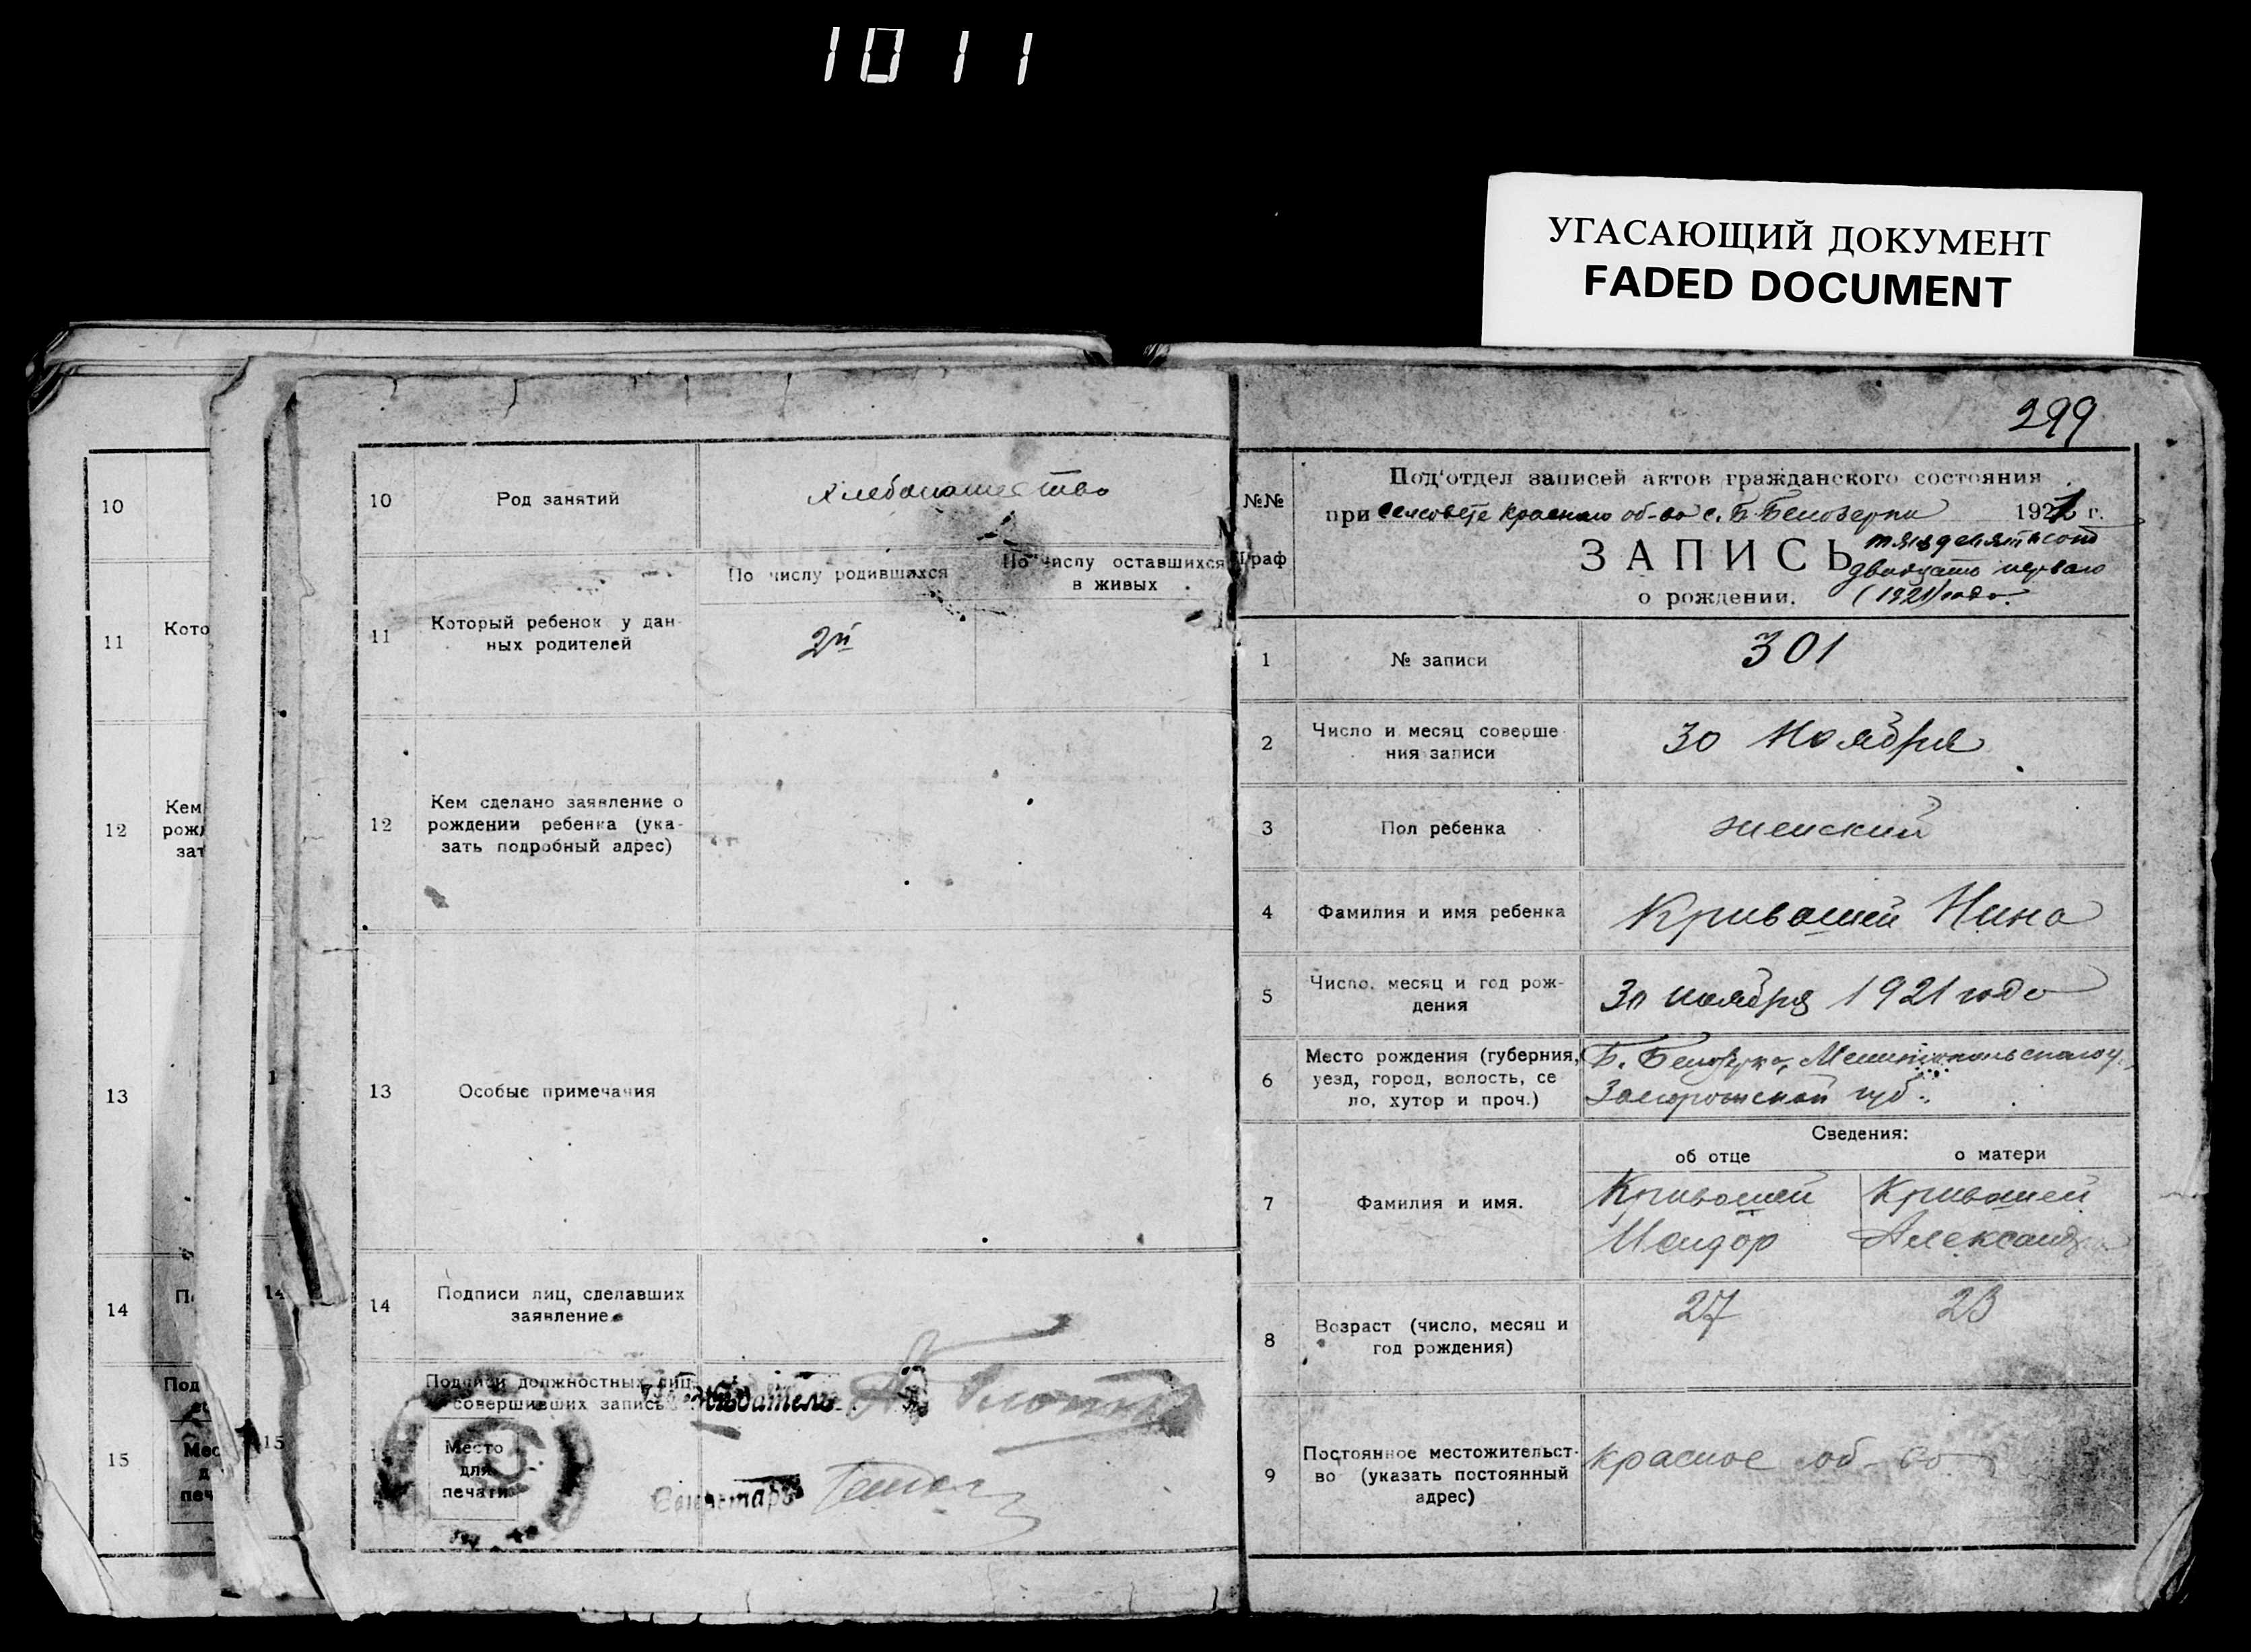 1011
УГАСАЮЩИЙ ДОКУМЕНТ
FADED DOCUMENT
10
11
Кото
12
Кем
рожд
зат
13
14
По
Под
15
Мес
д
печ
14
15
10
Род занятий
Хлебопашество
11
Который ребенок у дан-
ных родителей
По числу родившихся
По числу оставшихся
в живых
2й
12
Кем сделано заявление о
рождении ребенка (ука-
зать подробный адрес)
13
Особые примечания
14
Подписи лиц, сделавших
заявление
Подписи должностных лиц,
совершивших запись
Председатель
Место
для
печати
Секретарь
299
№№
Граф
Под'отдел записей актов гражданского состояния
при сельсовете Красного об-ва с. Б. Белозерки 1921 г.
ЗАПИСЬ тысяча девятьсот
двадцать первого
о рождении. (1921) года.
1
№ записи
301
2
Число и месяц соверше
ния записи
30 Ноября
3
Пол ребенка
женский
4
Фамилия и имя ребенка
Кривошей Нина
5
Число, месяц и год рож-
дения
30 ноября 1921 года
6
Место рождения (губерния,
уезд, город, волость, се
ло, хутор и проч.)
Б. Белозерка, Мелитопольского у.,
Запорожской губ.
Сведения:
об отце
о матери
7
Фамилия и имя.
Кривошей
Исидор
Кривошей
Александра
8
Возраст (число, месяц и
год рождения)
27
23
9
Постоянное местожительст-
во (указать постоянный
адрес)
Красное об-во